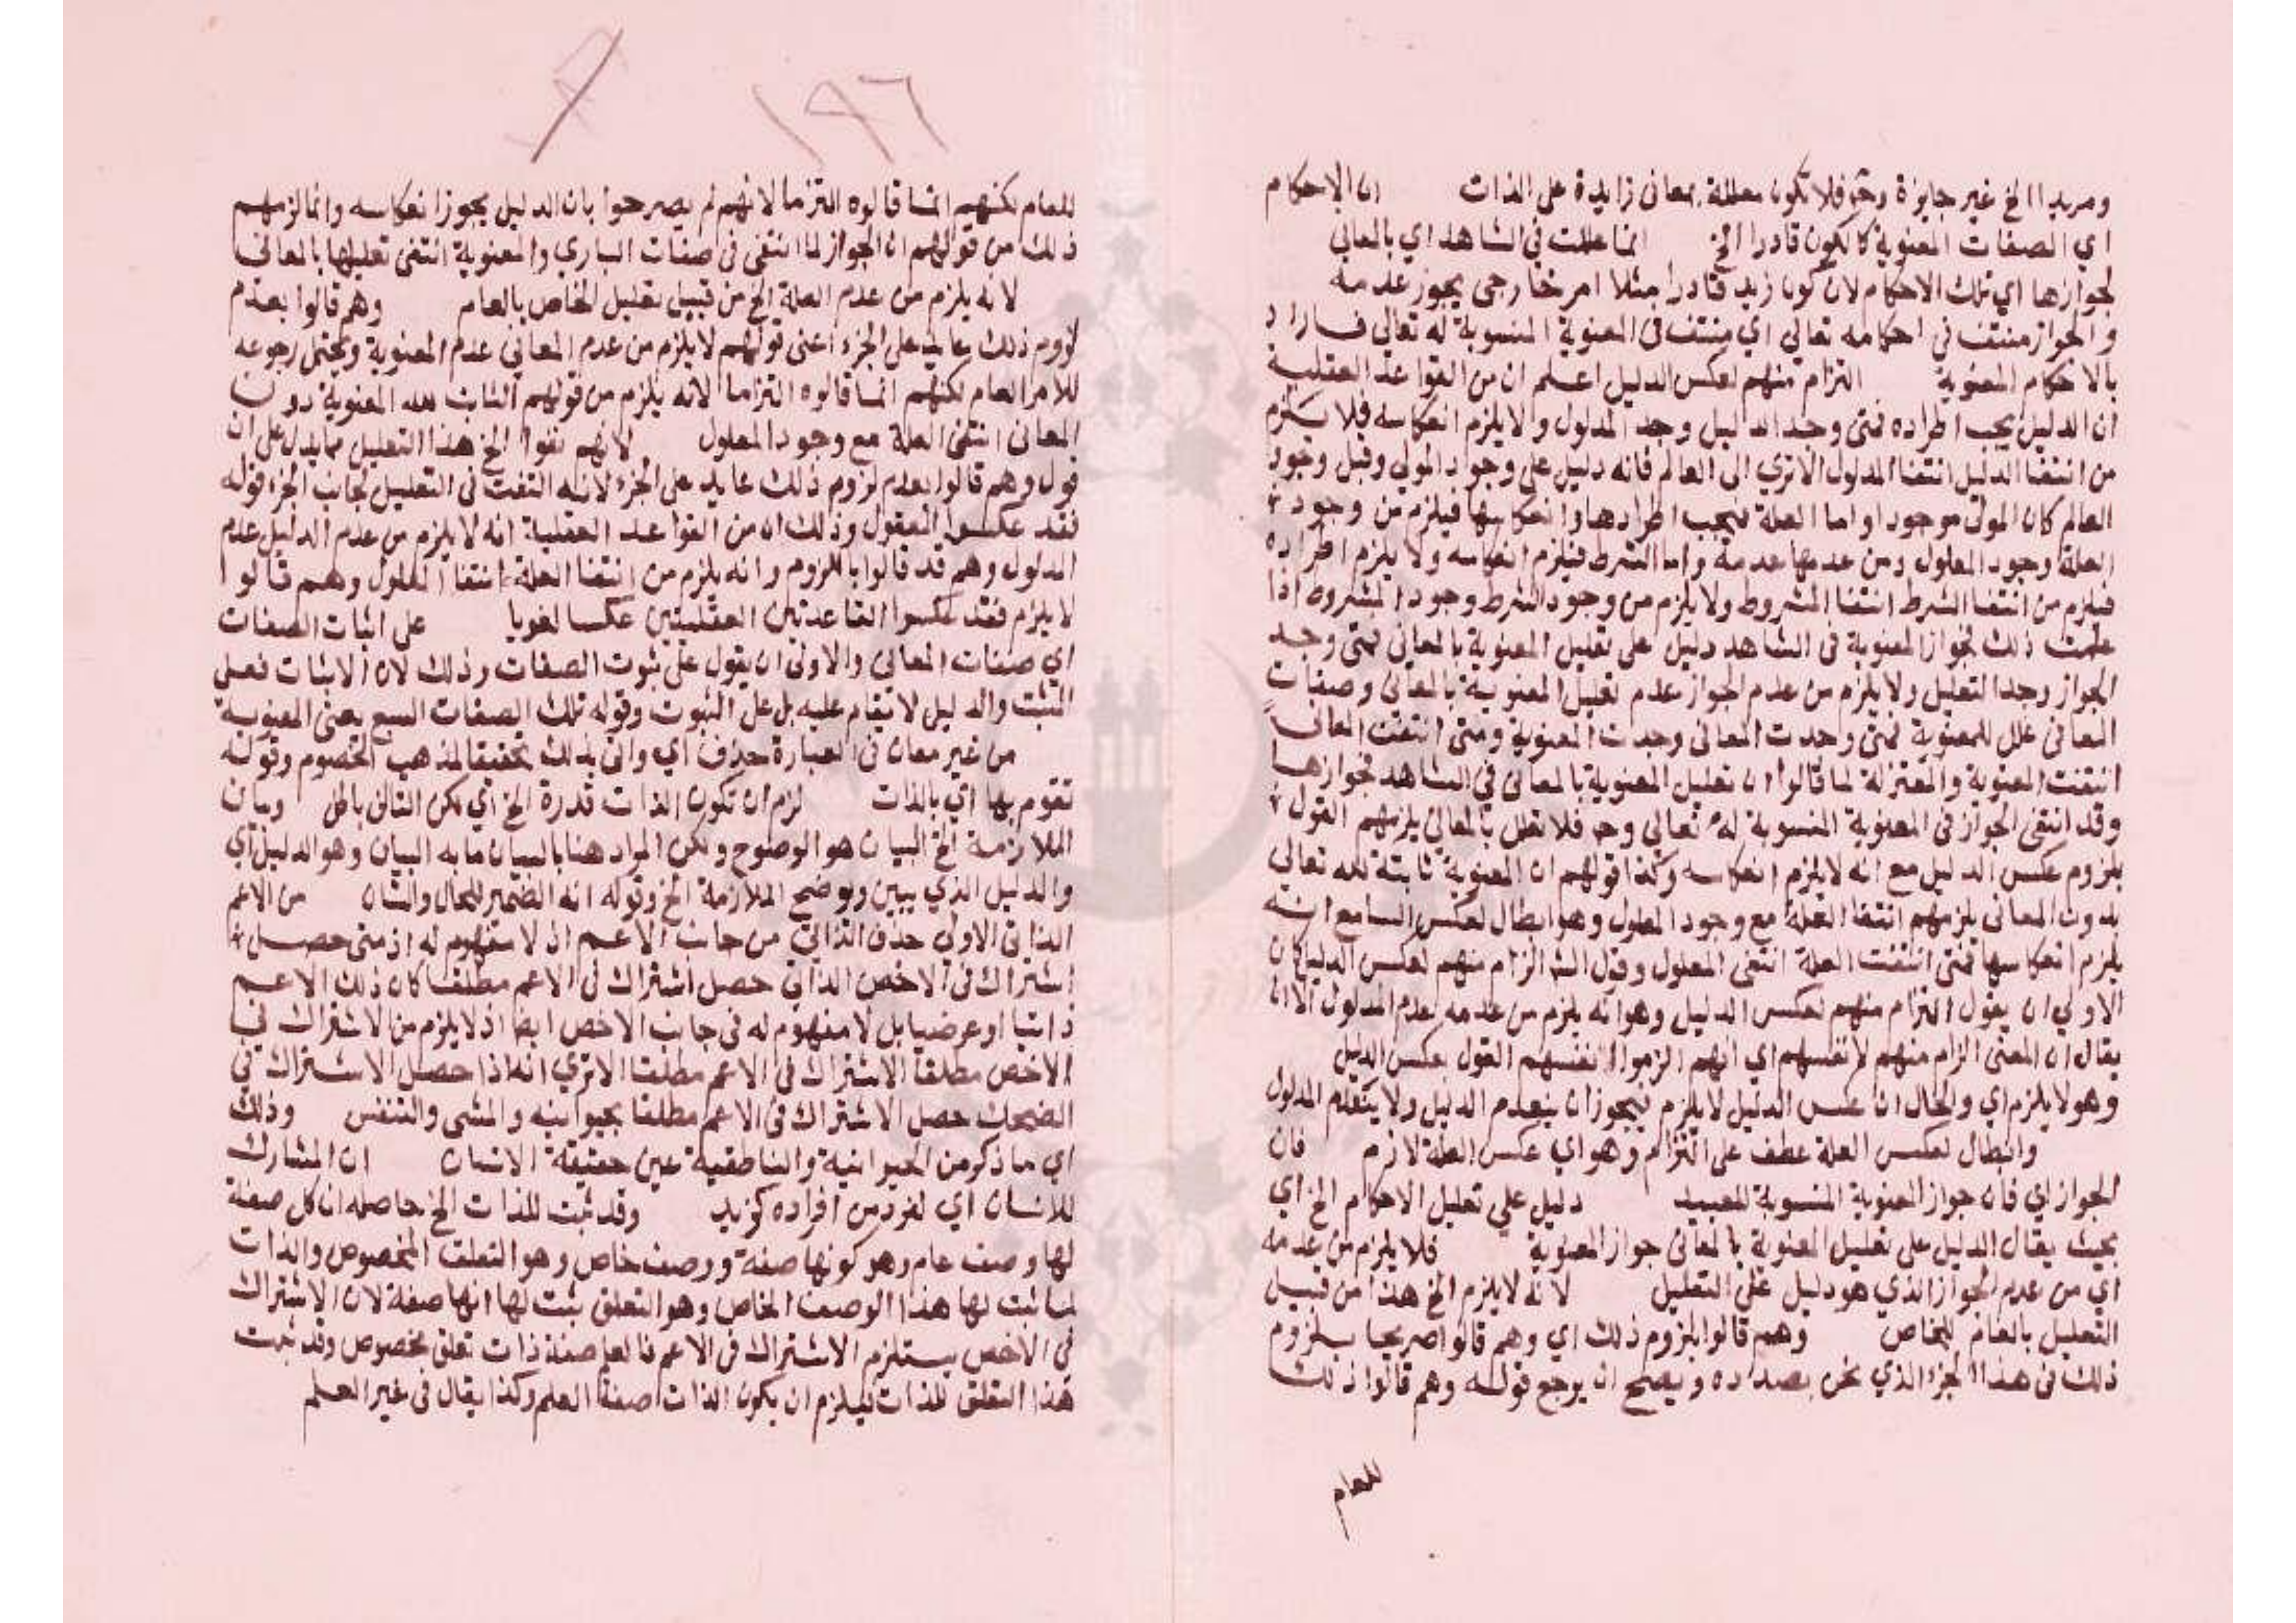 ومريدا الخ غير جايزة وح فلا تكون معللة بمعاني زايدة على الذات ان الاحكام
اي الصفات المعنوية كالكون قادرا الخ انما عللت في الشاهد اي بالمعاني
لجوازها اي تلك الاحكام لان كون زيد قادرا مثلا امر خارجي يجوز عدمه
والجواز منتف في احكامه تعالى اي منتف في المعنوية المنسوبة له تعالى فاراد
بالاحكام المعنوية التزام منهم لعكس الدليل اعلم ان من القواعد العقلية
ان الدليل يجب اطراده فمتى وجد الدليل وجد المدلول ولا يلزم انعكاسه فلا يلزم
من انتفا الدليل انتفا المدلول الا تري الى العالم فانه دليل على وجود المولي وقبل وجود
العالم كان المولى موجودا واما العلة فيجب اطرادها وانعكاسها فيلزم من وجود
العلة وجود المعلول ومن عدمها عدمه واما الشرط فيلزم انعكاسه ولا يلزم اطراده
فيلزم من انتفا الشرط انتفا المشروط ولا يلزم من وجود الشرط وجود المشروط اذا
علمت ذلك فجواز المعنوية في الشاهد دليل على تعليل المعنوية بالمعاني فمتى وجد
الجواز وجد التعليل ولا يلزم من عدم الجواز عدم تعليل المعنوية بالمعاني وصفات
المعاني علل للمعنوية فمتى وجدت المعاني وجدت المعنوية ومتى انتفت المعاني
انتفت المعنوية والمعتزلة لما قالوا ان تعليل المعنوية بالمعاني في الشاهد لجوازها
وقد انتفى الجواز في المعنوية المنسوبة له تعالى وح فلا تعلل بالمعاني يلزمهم القول
بلزوم عكس الدليل مع انه لا يلزم انعكاسه وكذا قولهم ان المعنوية ثابتة لله تعالى
بدون المعاني يلزمهم انتفا العلة مع وجود المعلول وهو ابطال لعكس السامع انه
يلزم انعكاسها فمتى انتفت العلة انتفى المعلول وقول الش الزام منهم لعكس الدليل كان
الاولي ان يقول التزام منهم لعكس الدليل وهو انه يلزم من عدمه عدم المدلول الا ان
يقال ان المعنى الزام منهم لانفسهم اي انهم الزموا انفسهم القول بعكس الدليل
وهو لا يلزم اي والحال ان عكس الدليل لا يلزم فيجوز ان ينعدم الدليل ولا ينعدم المدلول
وابطال لعكس العلة عطف على التزام وهو اي عكس العلة لازم فان
الجواز اي فان جواز المعنوية المنسوبة للعبيد دليل على تعليل الاحكام الخ اي
بحيث يقال الدليل على تعليل المعنوية بالمعاني جواز المعنوية فلا يلزم من عدمه
اي من عدم الجواز الذي هو دليل على التعليل لانه لا يلزم الخ هذا من قبيل
التعليل بالعام للخاص وهم قالوا بلزوم ذلك اي وهم قالوا صريحا بلزوم
ذلك في هذا الجزء الذي نحن بصدده ويصح ان يرجع قوله وهم قالوا ذلك
للعام
١٩٦
للعام لكنهم انما قالوه التزاما لانهم لم يصرحوا بان الدليل يجوز انعكاسه وانما لزمهم
ذلك من قولهم ان الجواز لما انتفى في صفات الباري والمعنوية انتفى تعليلها بالمعاني
لانه يلزم من عدم العلة الخ من قبيل تعليل الخاص بالعام وهم قالوا بعدم
لزوم ذلك عايد على الجزء اعنى قولهم لا يلزم من عدم المعاني عدم المعنوية ويحتمل رجوعه
للامر العام لكنهم انما قالوه التزاما لانه يلزم من قولهم الثابت لله المعنوية دون
المعاني انتفى العلة مع وجود المعلول لانهم نفوا الخ هذا التعليل مما يدل على ان
قول وهم قالوا بعدم لزوم ذلك عايد على الجزء لانه التفت في التعليل لجانب الجزء قوله
فقد عكسوا المعقول وذلك ان من القواعد العقلية انه لا يلزم من عدم الدليل عدم
المدلول وهم قد قالوا باللزوم وانه يلزم من انتفا العلة انتفا المعلول وهم قالوا
لا يلزم فقد عكسوا القاعدتين العقليتين عكسا لغويا على اثبات الصفات
اي صفات المعاني والاولى ان يقول على ثبوت الصفات وذلك لان الاثبات فعل
المثبت والدليل لا يقام عليه بل على الثبوت وقوله تلك الصفات السبع يعنى المعنوية
من غير معان في العبارة حذف اي واتى بذلك تحقيقا لمذهب الخصوم وقوله
تقوم بها اي بالذات لزم ان تكون الذات قدرة الخ اي لكن التالى باطل وبيان
الملازمة الخ البيان هو الوضوح ولكن المراد هنا بالبيان ما به البيان وهو الدليل اي
والدليل الذي يبين ويوضح الملازمة الخ وقوله انه الضمير للحال والشان من الاعم
الذاتي الاولي حذف الذاتي من جانب الاعم اذ لا مفهوم له اذ متى حصل
اشتراك في الاخص الذاتي حصل اشتراك في الاعم مطلقا كان ذلك الاعم
ذاتيا او عرضيا بل لا مفهوم له في جانب الاخص ايضا اذ لا يلزم من الاشتراك في
الاخص مطلقا الاشتراك في الاعم مطلقا الا تري انه اذا حصل الاشتراك في
الضحك حصل الاشتراك في الاعم مطلقا بحيوانيه والمشى والتنفس وذلك
اي ما ذكر من الحيوانية والناطقية عين حقيقة الانسان ان المشارك
للانسان اي لفرد من افراده كزيد وقد ثبت للذات الخ حاصله ان كل صفة
لها وصف عام وهو كونها صفة ووصف خاص وهو التعلق المخصوص والذات
لما ثبت لها هذا الوصف الخاص وهو التعلق ثبت لها انها صفة لان الاشتراك
في الاخص يستلزم الاشتراك في الاعم فالعلم صفة ذات تعلق مخصوص وقد ثبت
هذا التعلق للذات فيلزم ان يكون الذات صفة العلم وكذا يقال في غير العلم